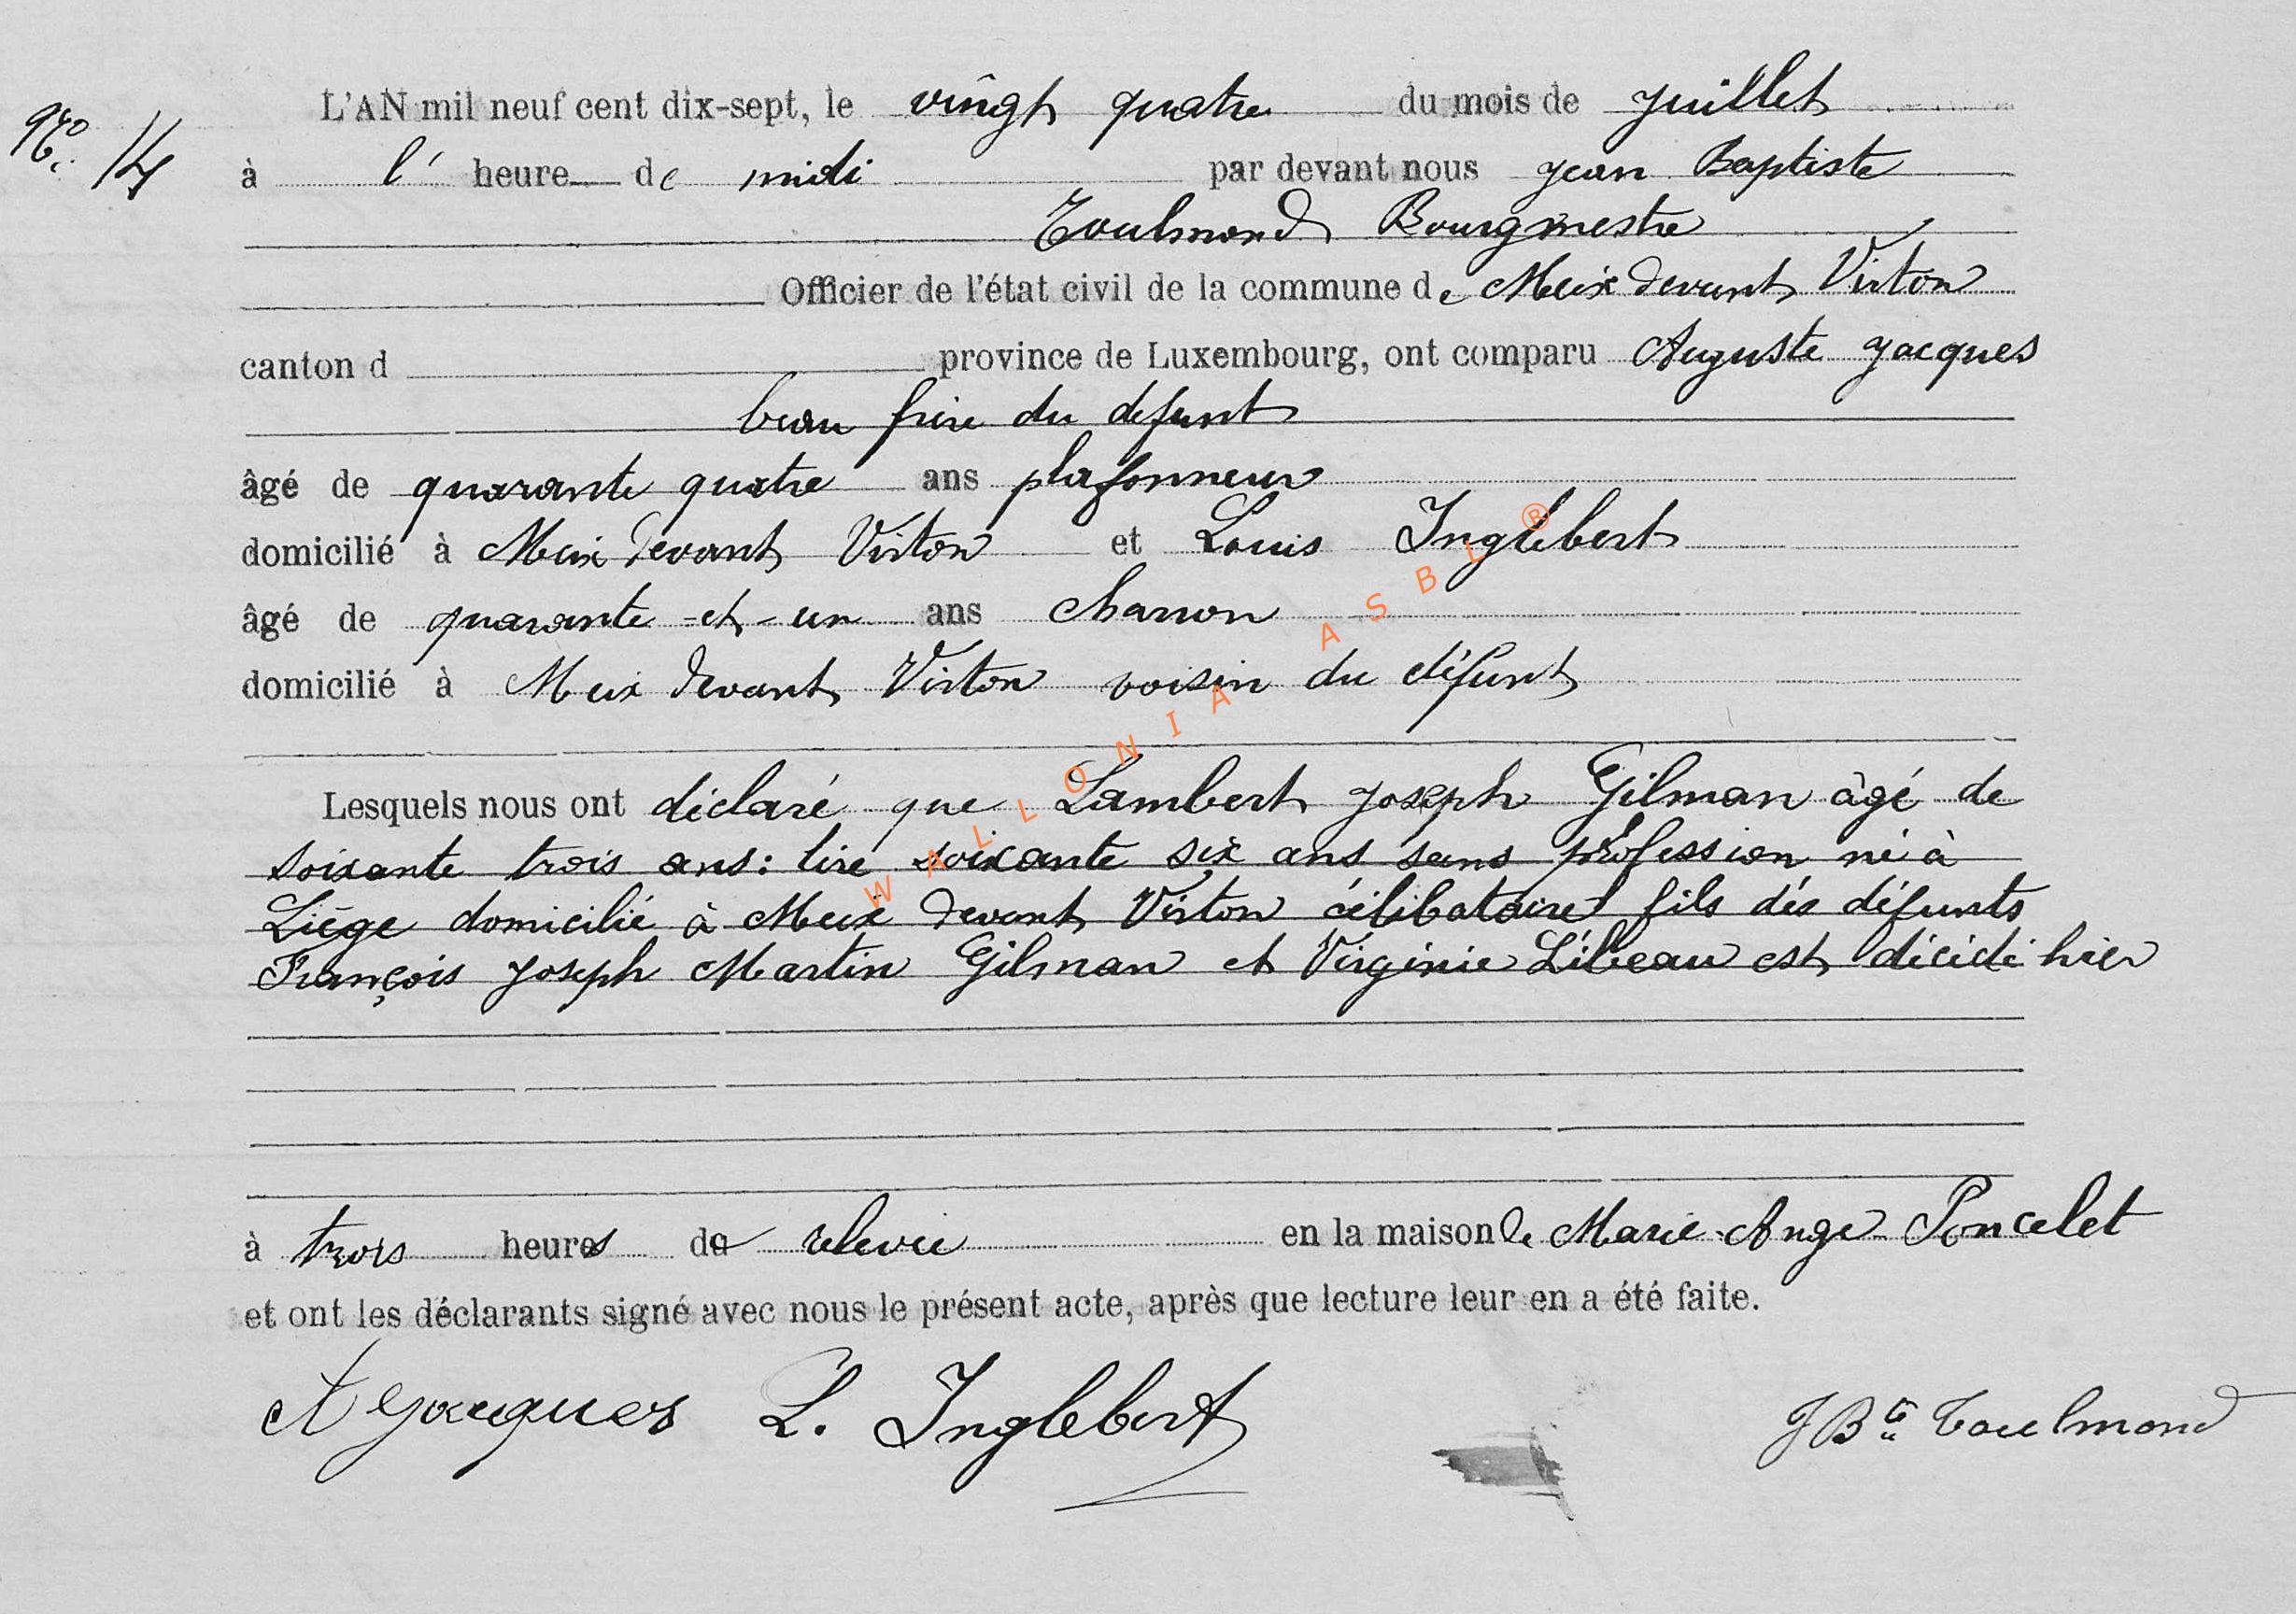 Nro 14
L'AN mil neuf cent dix-sept, le vingt quatre du mois de juillet
à l' heure de midi par devant nous Jean Baptiste
Toulmond Bourgmestre
Officier de l'état civil de la commune de Meix devant Virton
canton d province de Luxembourg, ont comparu Auguste Jacques
beau frère du defunt
âgé de quarante quatre ans plafonneur
domicilié à Meix devant Virton et Louis Inglebert
âgé de quarante-et-un ans charron
domicilié à Meix devant Virton voisin du défunt
Lesquels nous ont déclaré que Lambert Joseph Gilman âgé de
soixante trois ans: lire soixante six ans sans profession né à
Liège domicilié à Meix devant Virton célibataire fils dés défunts
François Joseph Martin Gilman et Virginie Libeau est décédé hier
à trois heures de relevée en la maison de Marie-Ange Poncelet
et ont les déclarants signé avec nous le présent acte, après que lecture leur en a été faite.
A Jacques L. Inglebert JBte Toulmond
WALLONIA ASBL ®